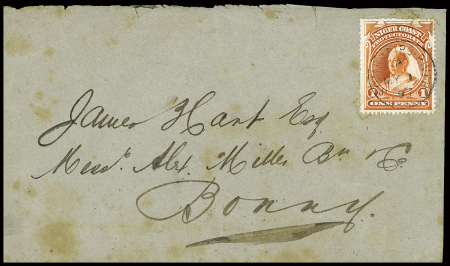 NIGER COAST
PROTECTORATE
1 1
ONE PENNY
James Hart Esq
Messrs Alex. Miller Bro & Co.
Bonny.